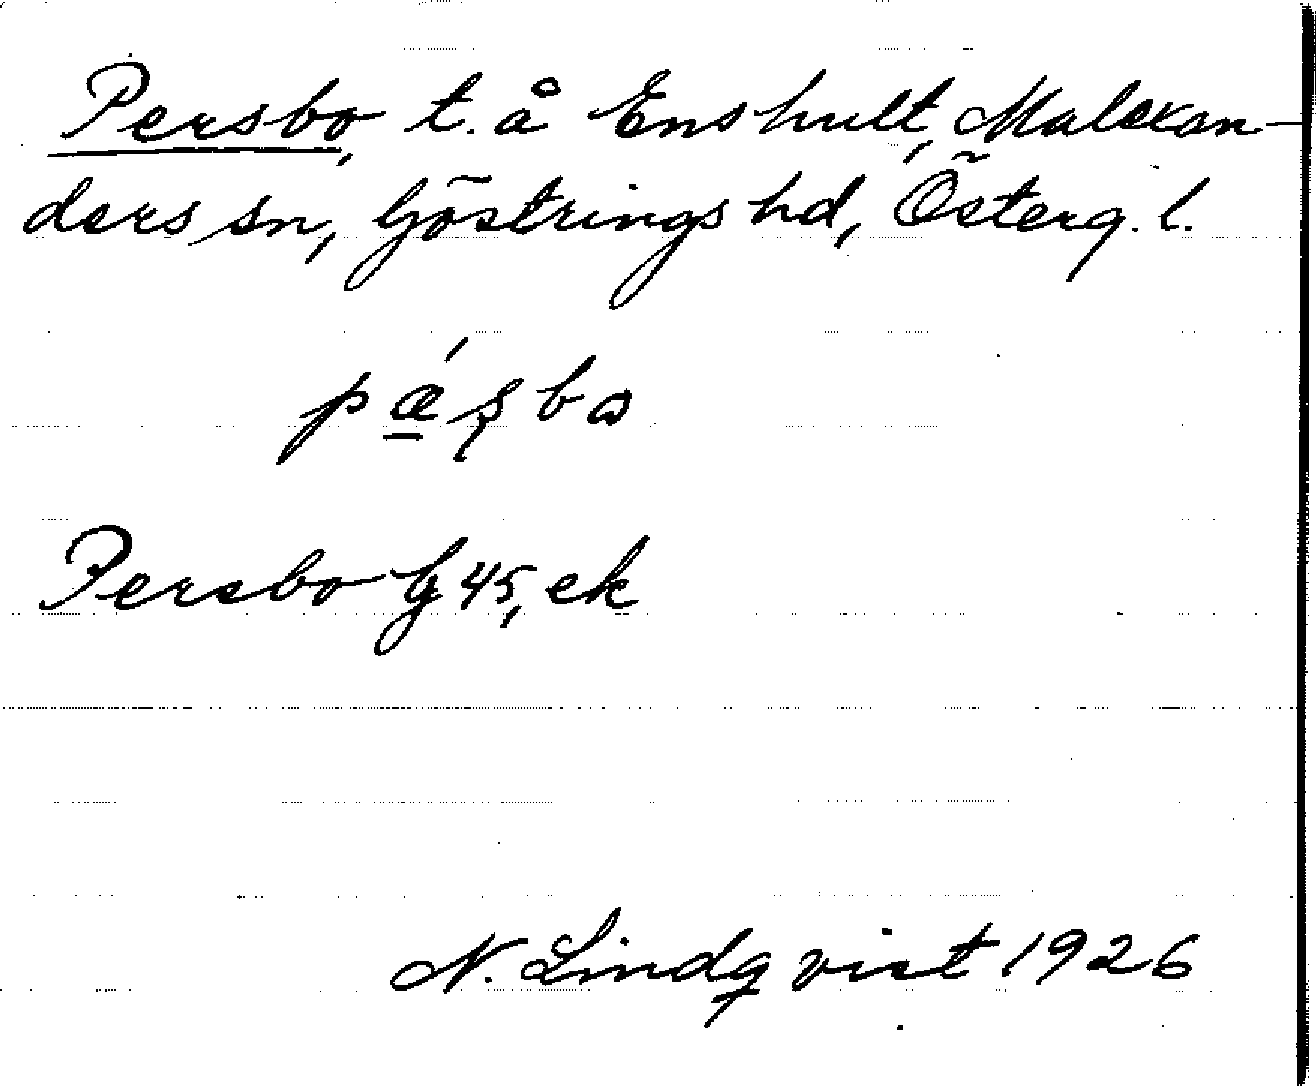 Persbo, t. å Enshult, Malexan-
ders sn, Göstrings hd, Österg. l.
pǽ̱ʂbo
Persbo G 45, ek
N. Lindqvist 1926